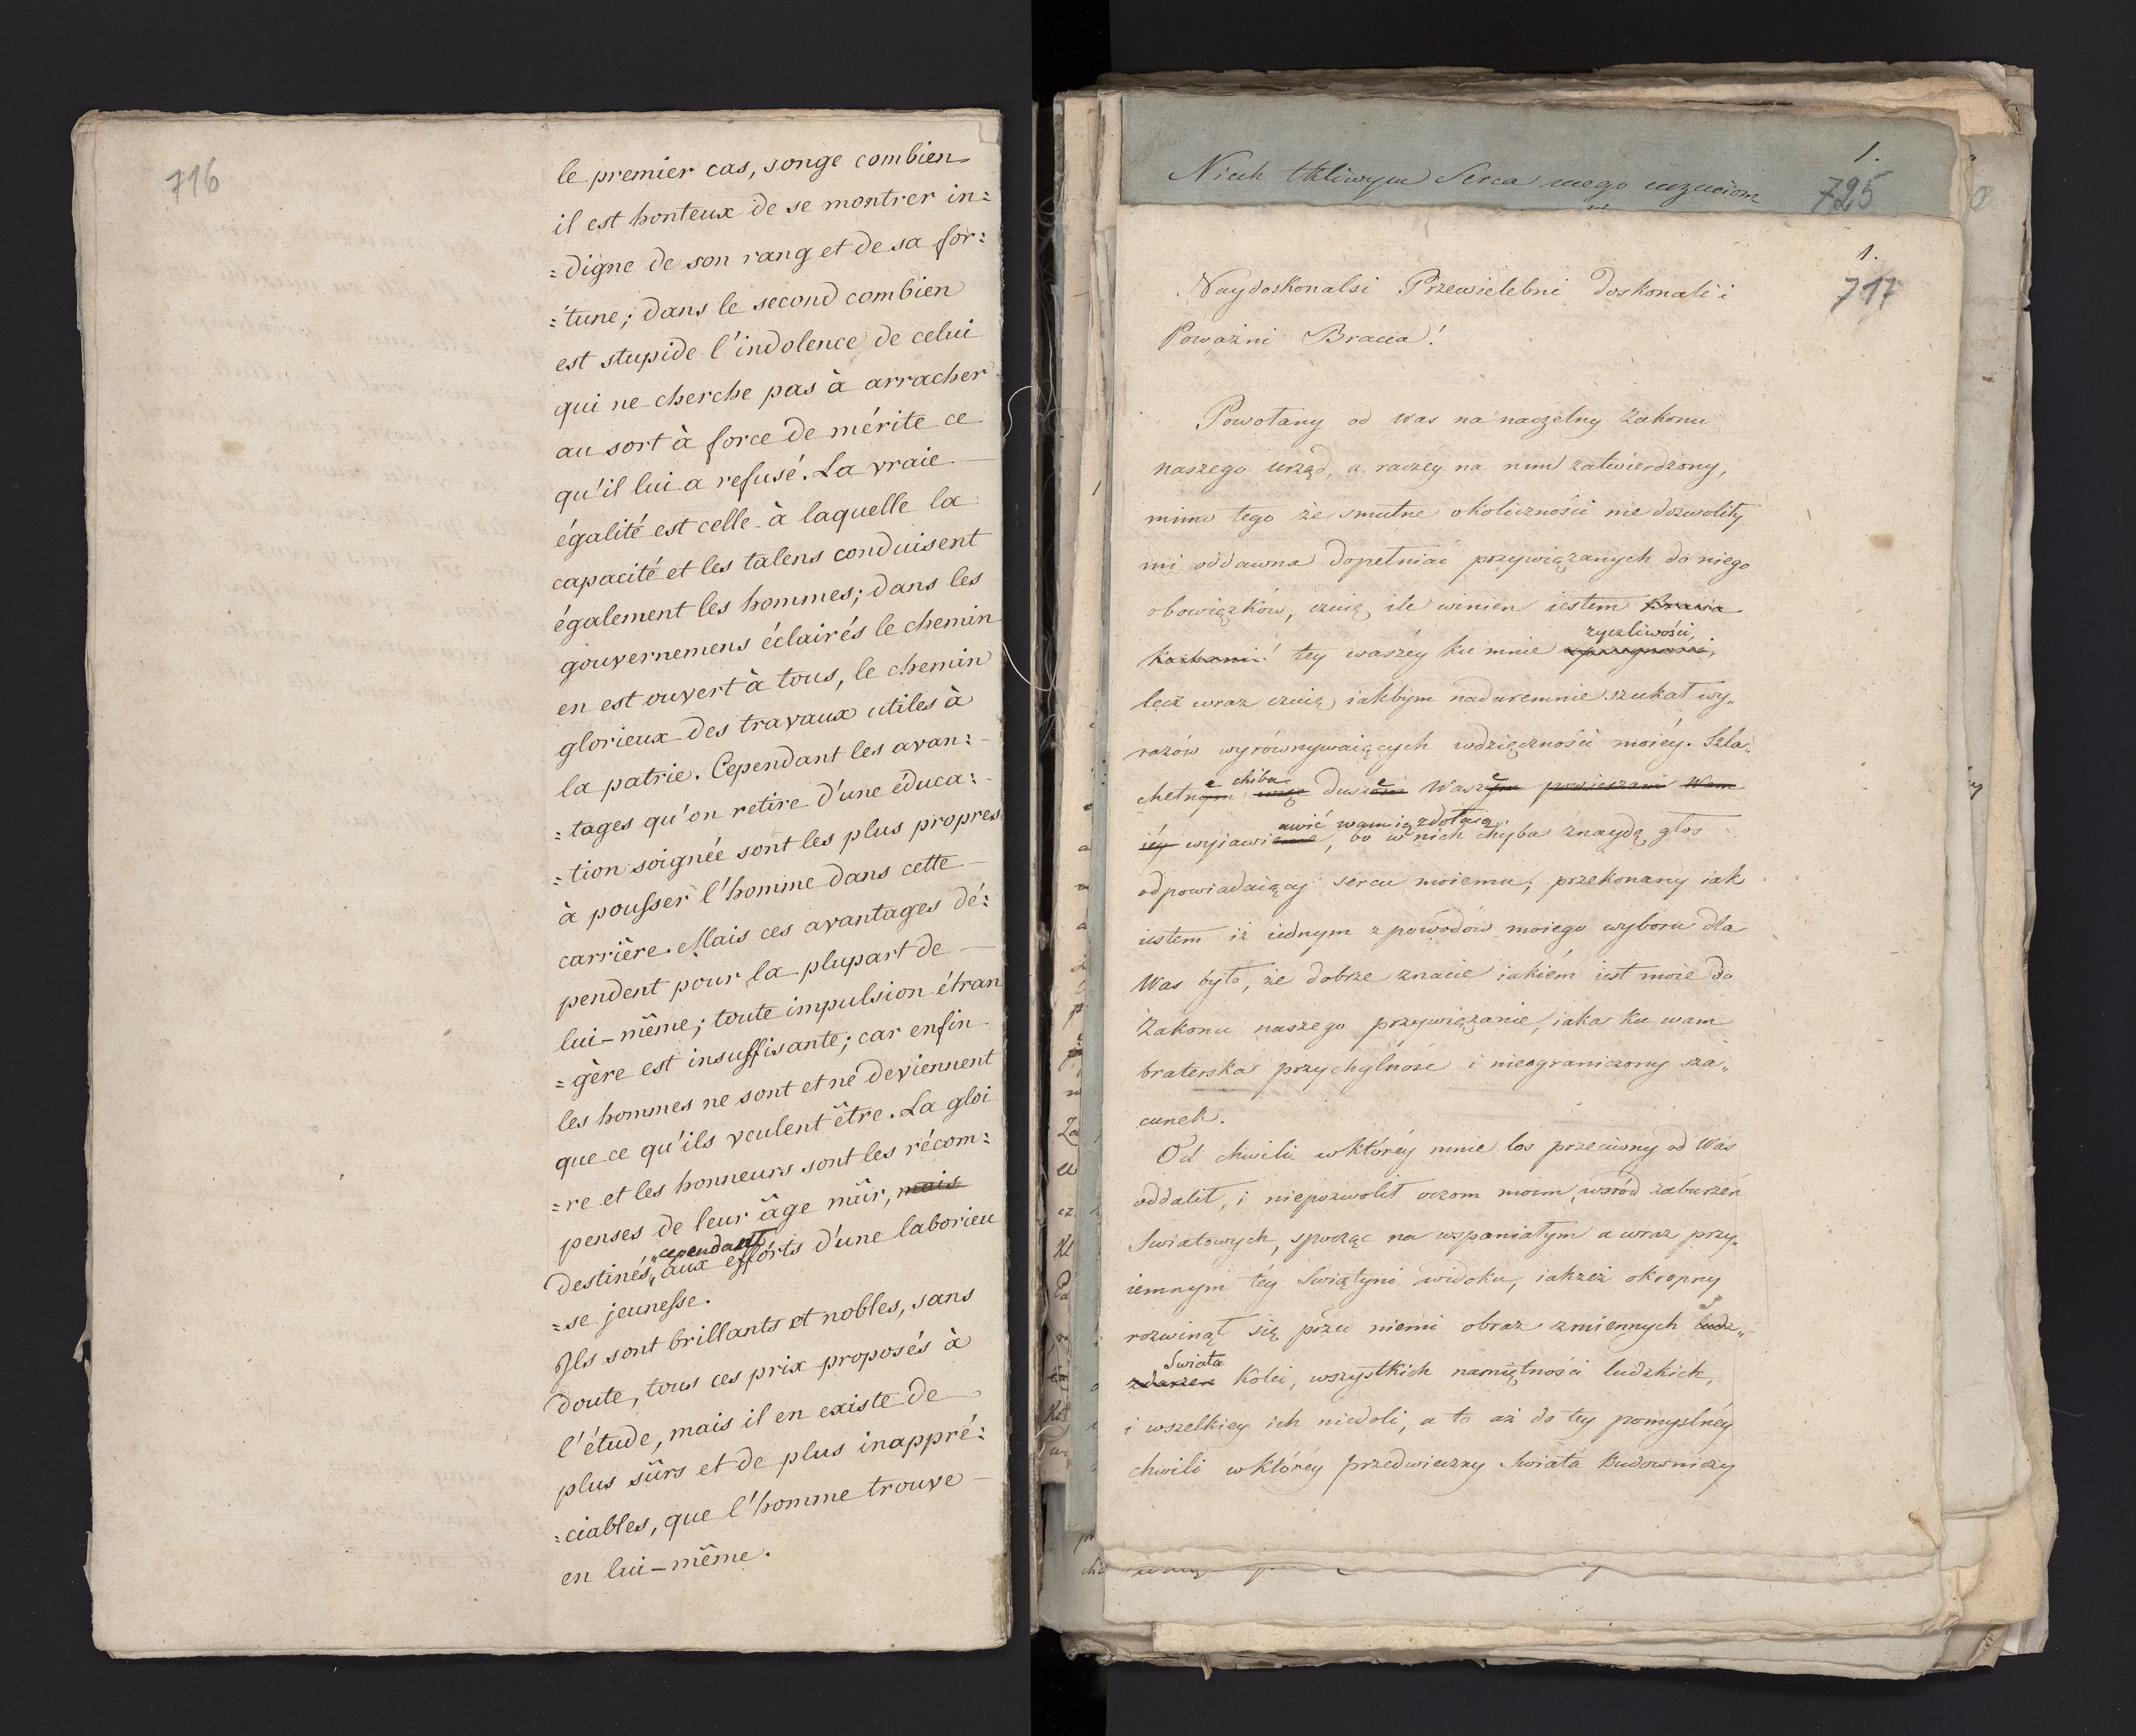 716
le premier cas, songe combien
il est honteux de se montrer in=
=digne de son rang et de sa for=
=tune; dans le second combien
est stupide l'indolence de celui
qui ne cherche pas à arracher
au sort à force de mérite ce
qu'il lui a refusé. La vraie
égalité est celle à laquelle la
capacité et les talens conduisent
également les hommes; dans les
gouvernemens éclairés le chemin
en est ouvert à tous, le chemin
glorieux des travaux utiles à
la patrie. Cependant les avan=
=tages qu'on retire d'une éduca=
=tion soignée sont les plus propres
à pousser l'homme dans cette
carrière. Mais ces avantages dé=
pendent pour la plupart de
lui-même; toute impulsion étran
=gère est insuffisante; car enfin
les hommes ne sont et ne deviennent
que ce qu'ils veulent être. La gloi
=re et les honneurs sont les récom=
penses de leur âge mûr, mais
cependant
destinés aux efforts d'une laborieu
=se jeunesse.
Ils sont brillants et nobles, sans
doute, tous ces prix proposés à
l'étude, mais il en existe de
plus sûrs et de plus inappré=
=ciables, que l'homme trouve
en lui-même.
1.
Niech tkliwym Serca mego uczuciom
725
1.
717
Naydoskonalsi Przewielebni doskonali i
Poważni Bracia!
Powołany od was na naczelny Zakonu
naszego urząd, a raczey na nim zatwierdzony,
mimo tego że smutne okoliczności nie dozwoliły
mi oddawna dopełniać przywiązanych do niego
obowiązków, czuię ile winien iestem Bracia
życzliwości,
kochani! tey waszéy ku mnie
lecz wraz czuię iakbym nadaremnie szukał wy„
razów wyrównywaiących wdzięczności moiéy. Szla„
chiba
chetnym dusz Waszym Wam
wyiawi, bo w nich chyba znaydą głos
odpowiadaiący sercu moiemu; przekonany iak
iestem iż iednym z powodów moiego wyboru dla
Was było, że dobrze znacie iakiém iest moie do
Zakonu naszego przywiązanie, iaka ku wam
braterska przychylność i nieograniczony sza„
cunek.
Od chwili w któréy mnie los przeciwny od Was
oddalił, i niepozwolił oczom moim, wśród zaburzeń
Swiatowych, spocząć na wspaniałym a wraz przy„
iemnym téy Swiątyni widoku, iakżeż okropny
rozwinął się przed niemi obraz zmiennych ludz„
Swiata
zdarzeń kolei, wszystkich namiętności ludzkich,
i wszelkiey ich niedoli, a to aż do tey pomyślnéy
chwili w któréy przedwieczny Swiata Budowniczy